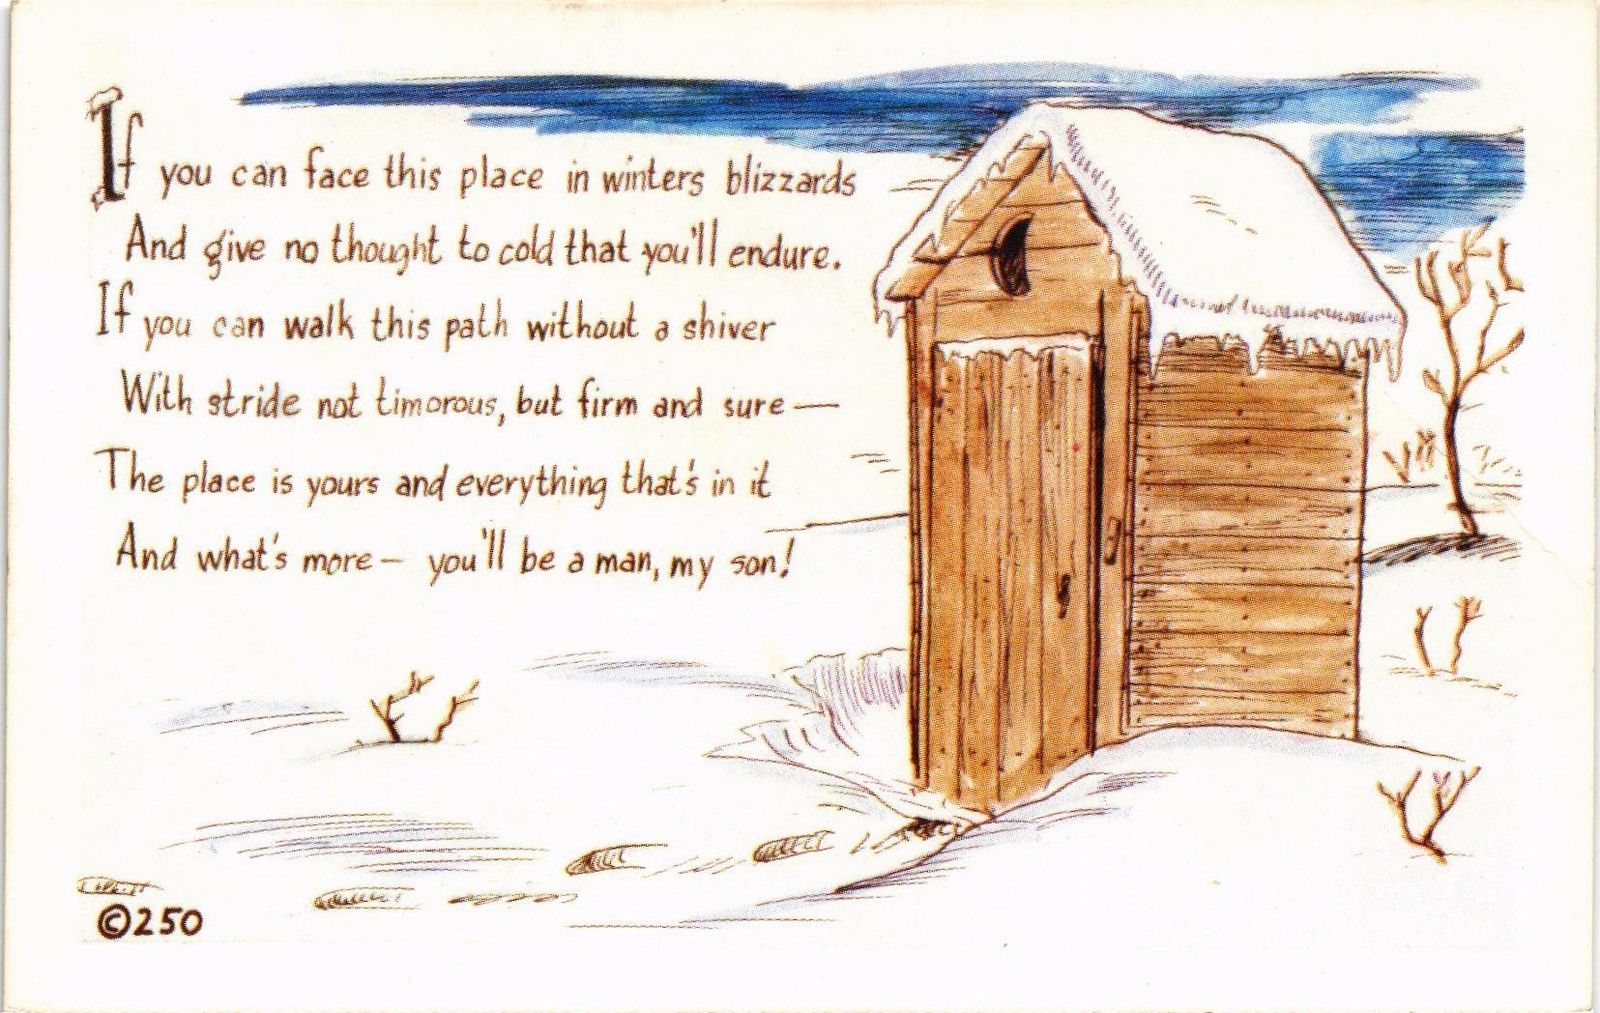 If you can face this place in winters blizzards
And give no thought to cold that you'll endure.
If you can walk this path without a shiver
With stride not timorous, but firm and sure —
The place is yours and everything that's in it
And what's more — you'll be a man, my son!
©250